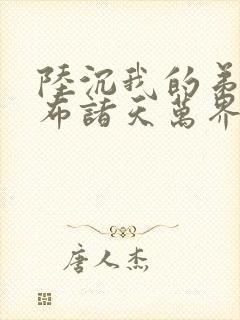 陸沉我的弟
布諸天萬界
唐人杰